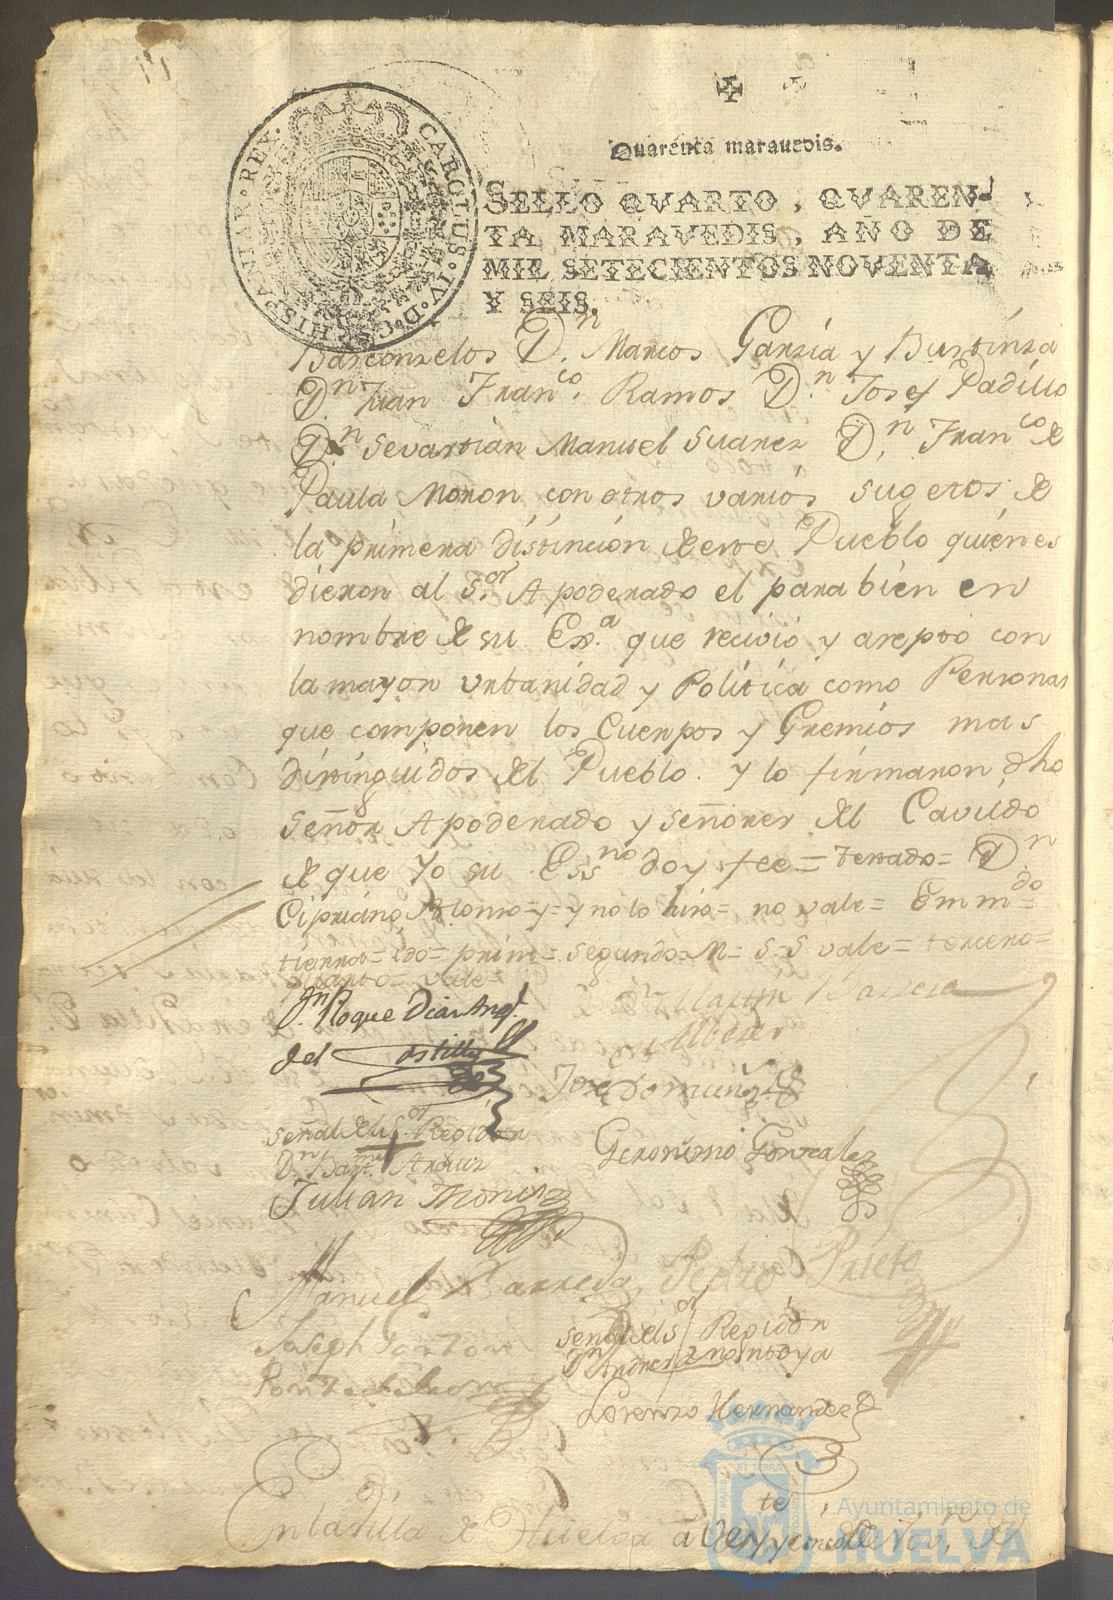 CAROLUS · IV · D · G · HISPANIAR · REX ·
Quarenta maravedis.
SELLO QVARTO, QVAREN-
TA MARAVEDIS, AÑO DE
MIL SETECIENTOS NOVENTA
Y SEIS.
Barconzelos D.n Marcos Garzía y Burtinza
D.n Juan Fran.co Ramos D.n Josef Padillo
D.n Sevartián Manuel Suarez D.n Fran.co de
Paula Moron con otros varios sugetos de
la primera distinción de este Pueblo quienes
dieron al S.or Apoderado el para bien en
nombre de su Ex.a que recivió y azepto con
la mayor urbanidad y Política como Personas
que componen los Cuerpos y Gremios mas
distinguidos del Pueblo. y lo firmaron dho
Señor Apoderado y señores del Cavildo
de que Yo su Ess.no doy fee= Testado= D.n
Cipriano Alonso=y=y no lo hiso= no vale= Emm.do
segundo= vale= tercero=
quarto= vale=
D.n Roque Dias Ang.l
del Castillo
Martin Barrera
señal del S.or Regidor
Geronimo Gonzalez
Julian
Manuel Barreda
Pedro Prieto
Joseph
Ponze de Leon
señal del S.or Regidor
D.n Andres Montoya
Lorenzo Hernandez
En la Villa de Huelva a Veynte y cinco de
Ayuntamiento de
HUELVA